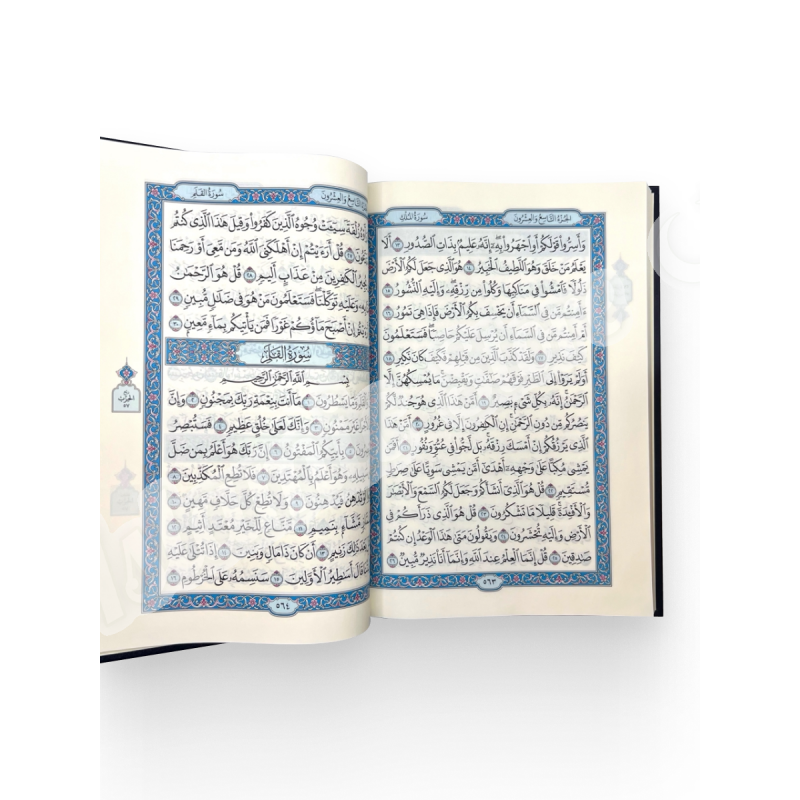 الجُزْءُ التَّاسِعُ وَالعِشْرُونَ
سُورَةُ المُلْكِ
وَأَسِرُّوا۟ قَوْلَكُمْ أَوِ ٱجْهَرُوا۟ بِهِۦٓ إِنَّهُۥ عَلِيمٌۢ بِذَاتِ ٱلصُّدُورِ ١٣ أَلَا
يَعْلَمُ مَنْ خَلَقَ وَهُوَ ٱللَّطِيفُ ٱلْخَبِيرُ ١٤ هُوَ ٱلَّذِى جَعَلَ لَكُمُ ٱلْأَرْضَ
ذَلُولًا فَٱمْشُوا۟ فِى مَنَاكِبِهَا وَكُلُوا۟ مِن رِّزْقِهِۦ وَإِلَيْهِ ٱلنُّشُورُ ١٥
ءَأَمِنتُم مَّن فِى ٱلسَّمَآءِ أَن يَخْسِفَ بِكُمُ ٱلْأَرْضَ فَإِذَا هِىَ تَمُورُ ١٦
أَمْ أَمِنتُم مَّن فِى ٱلسَّمَآءِ أَن يُرْسِلَ عَلَيْكُمْ حَاصِبًا فَسَتَعْلَمُونَ
كَيْفَ نَذِيرِ ١٧ وَلَقَدْ كَذَّبَ ٱلَّذِينَ مِن قَبْلِهِمْ فَكَيْفَ كَانَ نَكِيرِ ١٨
أَوَلَمْ يَرَوْا۟ إِلَى ٱلطَّيْرِ فَوْقَهُمْ صَٰٓفَّٰتٍ وَيَقْبِضْنَ مَا يُمْسِكُهُنَّ إِلَّا
ٱلرَّحْمَٰنُ إِنَّهُۥ بِكُلِّ شَىْءٍۭ بَصِيرٌ ١٩ أَمَّنْ هَٰذَا ٱلَّذِى هُوَ جُندٌ لَّكُمْ
يَنصُرُكُم مِّن دُونِ ٱلرَّحْمَٰنِ إِنِ ٱلْكَٰفِرُونَ إِلَّا فِى غُرُورٍ ٢٠ أَمَّنْ هَٰذَا
ٱلَّذِى يَرْزُقُكُمْ إِنْ أَمْسَكَ رِزْقَهُۥ بَل لَّجُّوا۟ فِى عُتُوٍّ وَنُفُورٍ ٢١ أَفَمَن
يَمْشِى مُكِبًّا عَلَىٰ وَجْهِهِۦٓ أَهْدَىٰٓ أَمَّن يَمْشِى سَوِيًّا عَلَىٰ صِرَٰطٍ
مُّسْتَقِيمٍ ٢٢ قُلْ هُوَ ٱلَّذِىٓ أَنشَأَكُمْ وَجَعَلَ لَكُمُ ٱلسَّمْعَ وَٱلْأَبْصَٰرَ
وَٱلْأَفْـِٔدَةَ قَلِيلًا مَّا تَشْكُرُونَ ٢٣ قُلْ هُوَ ٱلَّذِى ذَرَأَكُمْ فِى
ٱلْأَرْضِ وَإِلَيْهِ تُحْشَرُونَ ٢٤ وَيَقُولُونَ مَتَىٰ هَٰذَا ٱلْوَعْدُ إِن كُنتُمْ
صَٰدِقِينَ ٢٥ قُلْ إِنَّمَا ٱلْعِلْمُ عِندَ ٱللَّهِ وَإِنَّمَآ أَنَا۠ نَذِيرٌ مُّبِينٌ ٢٦
٥٦٣
التَّاسِعُ وَالعِشْرُونَ
سُورَةُ القَلَمِ
زُلْفَةً سِيٓـَٔتْ وُجُوهُ ٱلَّذِينَ كَفَرُوا۟ وَقِيلَ هَٰذَا ٱلَّذِى كُنتُم
٢٧ قُلْ أَرَءَيْتُمْ إِنْ أَهْلَكَنِىَ ٱللَّهُ وَمَن مَّعِىَ أَوْ رَحِمَنَا
ٱلْكَٰفِرِينَ مِنْ عَذَابٍ أَلِيمٍ ٢٨ قُلْ هُوَ ٱلرَّحْمَٰنُ
وَعَلَيْهِ تَوَكَّلْنَا فَسَتَعْلَمُونَ مَنْ هُوَ فِى ضَلَٰلٍ مُّبِينٍ ٢٩
إِنْ أَصْبَحَ مَآؤُكُمْ غَوْرًا فَمَن يَأْتِيكُم بِمَآءٍ مَّعِينٍۭ ٣٠
سُورَةُ القَلَمِ
بِسْمِ ٱللَّهِ ٱلرَّحْمَٰنِ ٱلرَّحِيمِ
يَسْطُرُونَ ١ مَآ أَنتَ بِنِعْمَةِ رَبِّكَ بِمَجْنُونٍ ٢ وَإِنَّ
غَيْرَ مَمْنُونٍ ٣ وَإِنَّكَ لَعَلَىٰ خُلُقٍ عَظِيمٍ ٤ فَسَتُبْصِرُ
٥ بِأَييِّكُمُ ٱلْمَفْتُونُ ٦ إِنَّ رَبَّكَ هُوَ أَعْلَمُ بِمَن ضَلَّ
وَهُوَ أَعْلَمُ بِٱلْمُهْتَدِينَ ٧ فَلَا تُطِعِ ٱلْمُكَذِّبِينَ ٨
تُدْهِنُ فَيُدْهِنُونَ ٩ وَلَا تُطِعْ كُلَّ حَلَّافٍ مَّهِينٍ ١٠
مَّشَّآءٍۭ بِنَمِيمٍ ١١ مَّنَّاعٍ لِّلْخَيْرِ مُعْتَدٍ أَثِيمٍ ١٢
بَعْدَ ذَٰلِكَ زَنِيمٍ ١٣ أَن كَانَ ذَا مَالٍ وَبَنِينَ ١٤ إِذَا تُتْلَىٰ عَلَيْهِ
قَالَ أَسَٰطِيرُ ٱلْأَوَّلِينَ ١٥ سَنَسِمُهُۥ عَلَى ٱلْخُرْطُومِ ١٦
٥٦٤
الحِزْبُ
٥٧